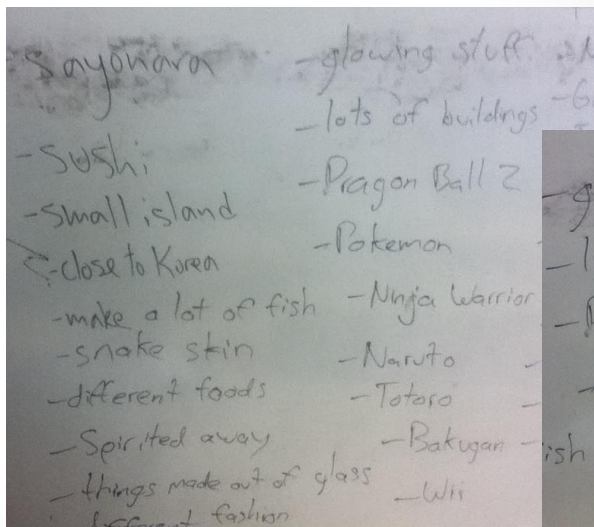 Sayonara
- Sushi
- small island
- close to Korea
- make a lot of fish
- snake skin
- different foods
- Spirited away
- things made out of glass
different fashion
- glowing stuff
- lots of buildings
- Dragon Ball Z
- Pokemon
- Ninja Warrior
- Naruto
- Totoro
- Bakugan
- Wii
ish